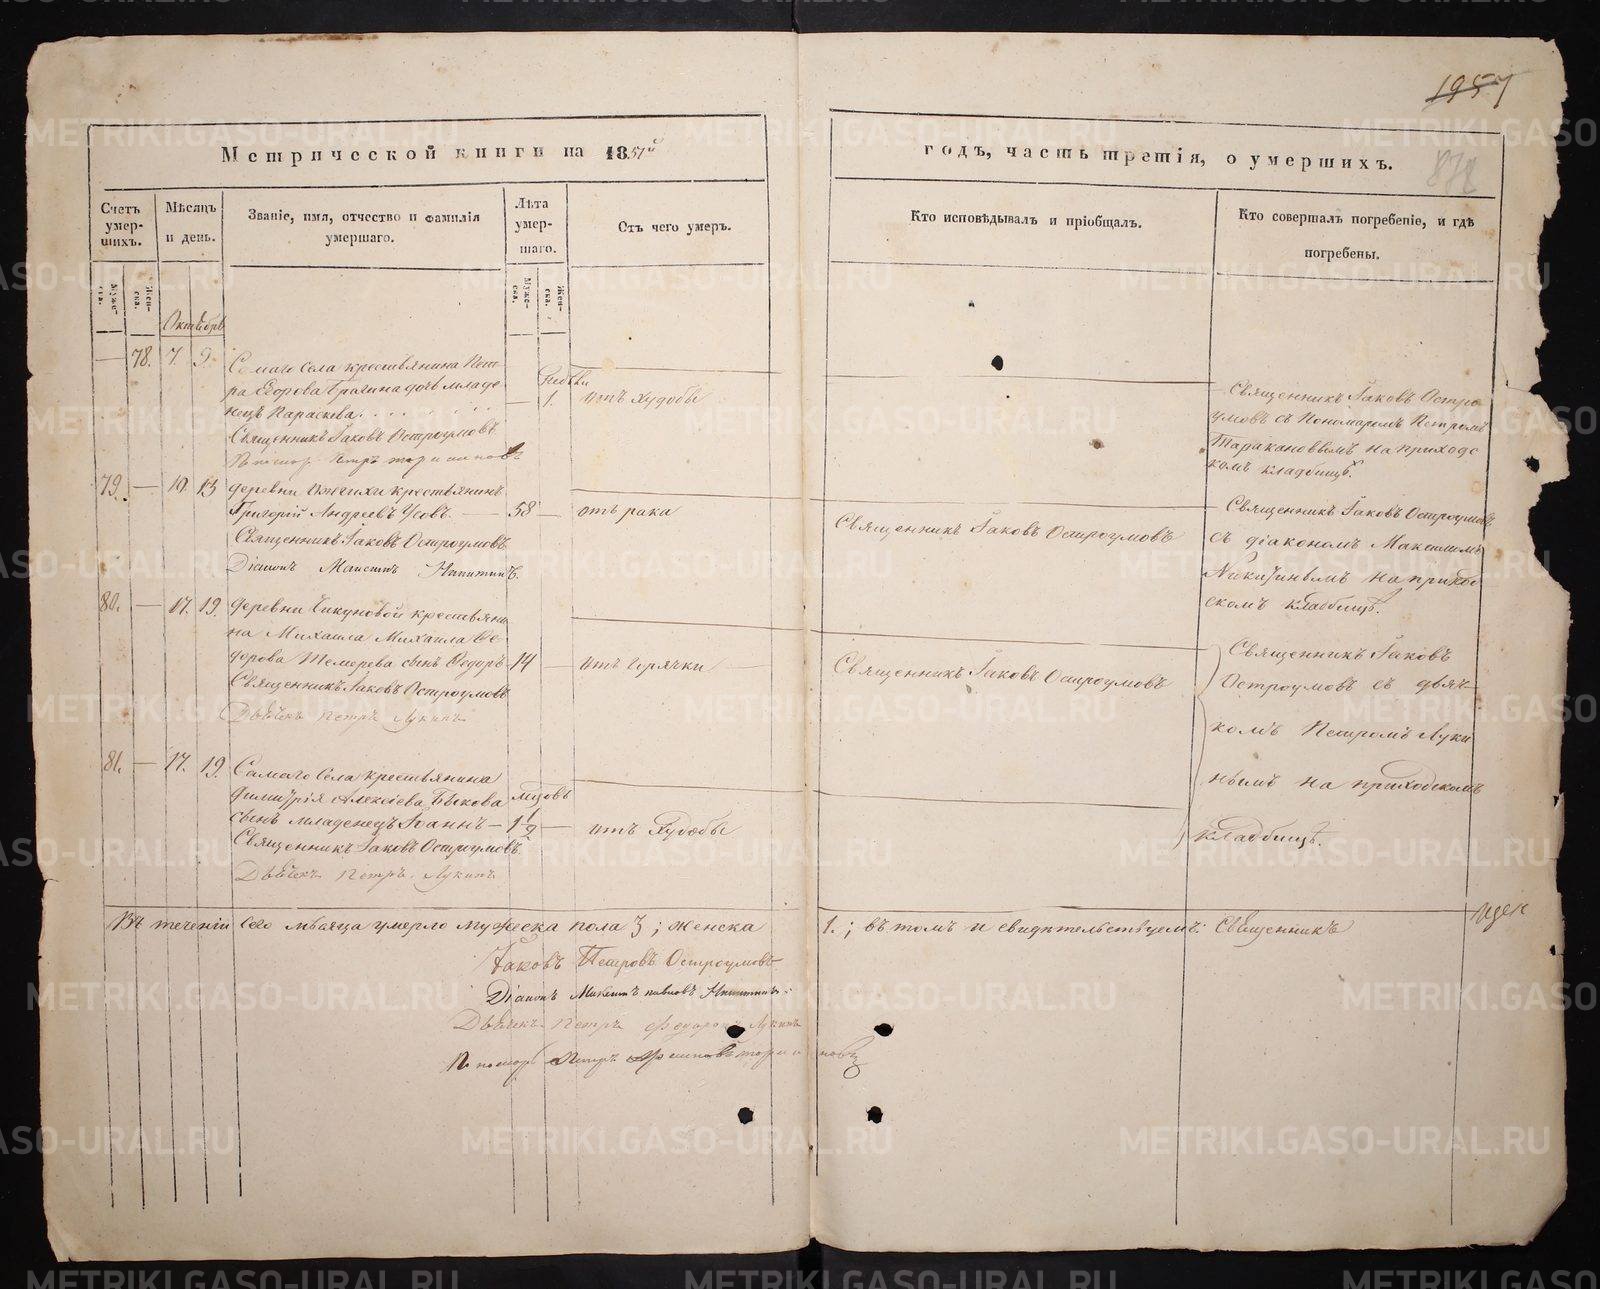 1957
872
Метрической книги на 1851й
годъ, часть третія, о умершихъ.
Счетъ умер-
шихъ.
Мѣсяцъ
и день.
Званіе, имя, отчество и фамилія
умершаго.
Лѣта
умер-
шаго.
Отъ чего умеръ.
Кто исповѣдывалъ и пріобщалъ.
Кто совершалъ погребеніе, и гдѣ
погребены.
Муже-
ска.
Жен-
ска.
Муже-
ска.
Жен-
ска.
Октябрь
78. 7. 9.
Самаго Села крестьянина Пет-
ра Егорова дочь младе-
нецъ Параскева
1.
отъ Худобы
Священникъ Іаковъ Остроумовъ
Священникъ Іаковъ Остро
умовъ съ Пономаремъ Петромъ
Таракановымъ на приходс
комъ кладбищѣ
79. 10. 13
деревни крестьянинъ
Григорій Андреевъ Усовъ.
58
отъ рака
Священникъ Іаковъ Остроумовъ
Діаконъ Максимъ Никитинъ.
Священникъ Іаковъ Остроумовъ
Священникъ Іаковъ Остроумовъ
съ діакономъ Максимомъ
Никитинымъ на приход
скомъ кладбищѣ.
80. 17. 19.
деревни Чикуновой крестьяни
на Михаила Михаила Ѳе
дорова сынъ Ѳедоръ
14
отъ горячки
Священникъ Іаковъ Остроумовъ
Дьячекъ Петръ Лукинъ
Священникъ Іаковъ Остроумовъ
Священникъ Іаковъ
Остроумовъ съ дьяч
комъ Петромъ Луки
нымъ на приходскомъ
кладбищѣ.
81. 17. 19.
Самаго Села крестьянина
Димитрія Алексіева Быкова
сынъ младенецъ Іоаннъ
1 1/2
отъ Худобы
Священникъ Іаковъ Остроумовъ.
Дьячекъ Петръ Лукинъ
Въ теченіи сего мѣсяца умерло мужеска пола 3; женска
1.; въ томъ и свидѣтельствуемъ: Священникъ
Іаковъ Петровъ Остроумовъ
Діаконъ Максимъ Павловъ Никитинъ
Дьячекъ Петръ Федоровъ Лукинъ
METRIKI.GASO-URAL.RU